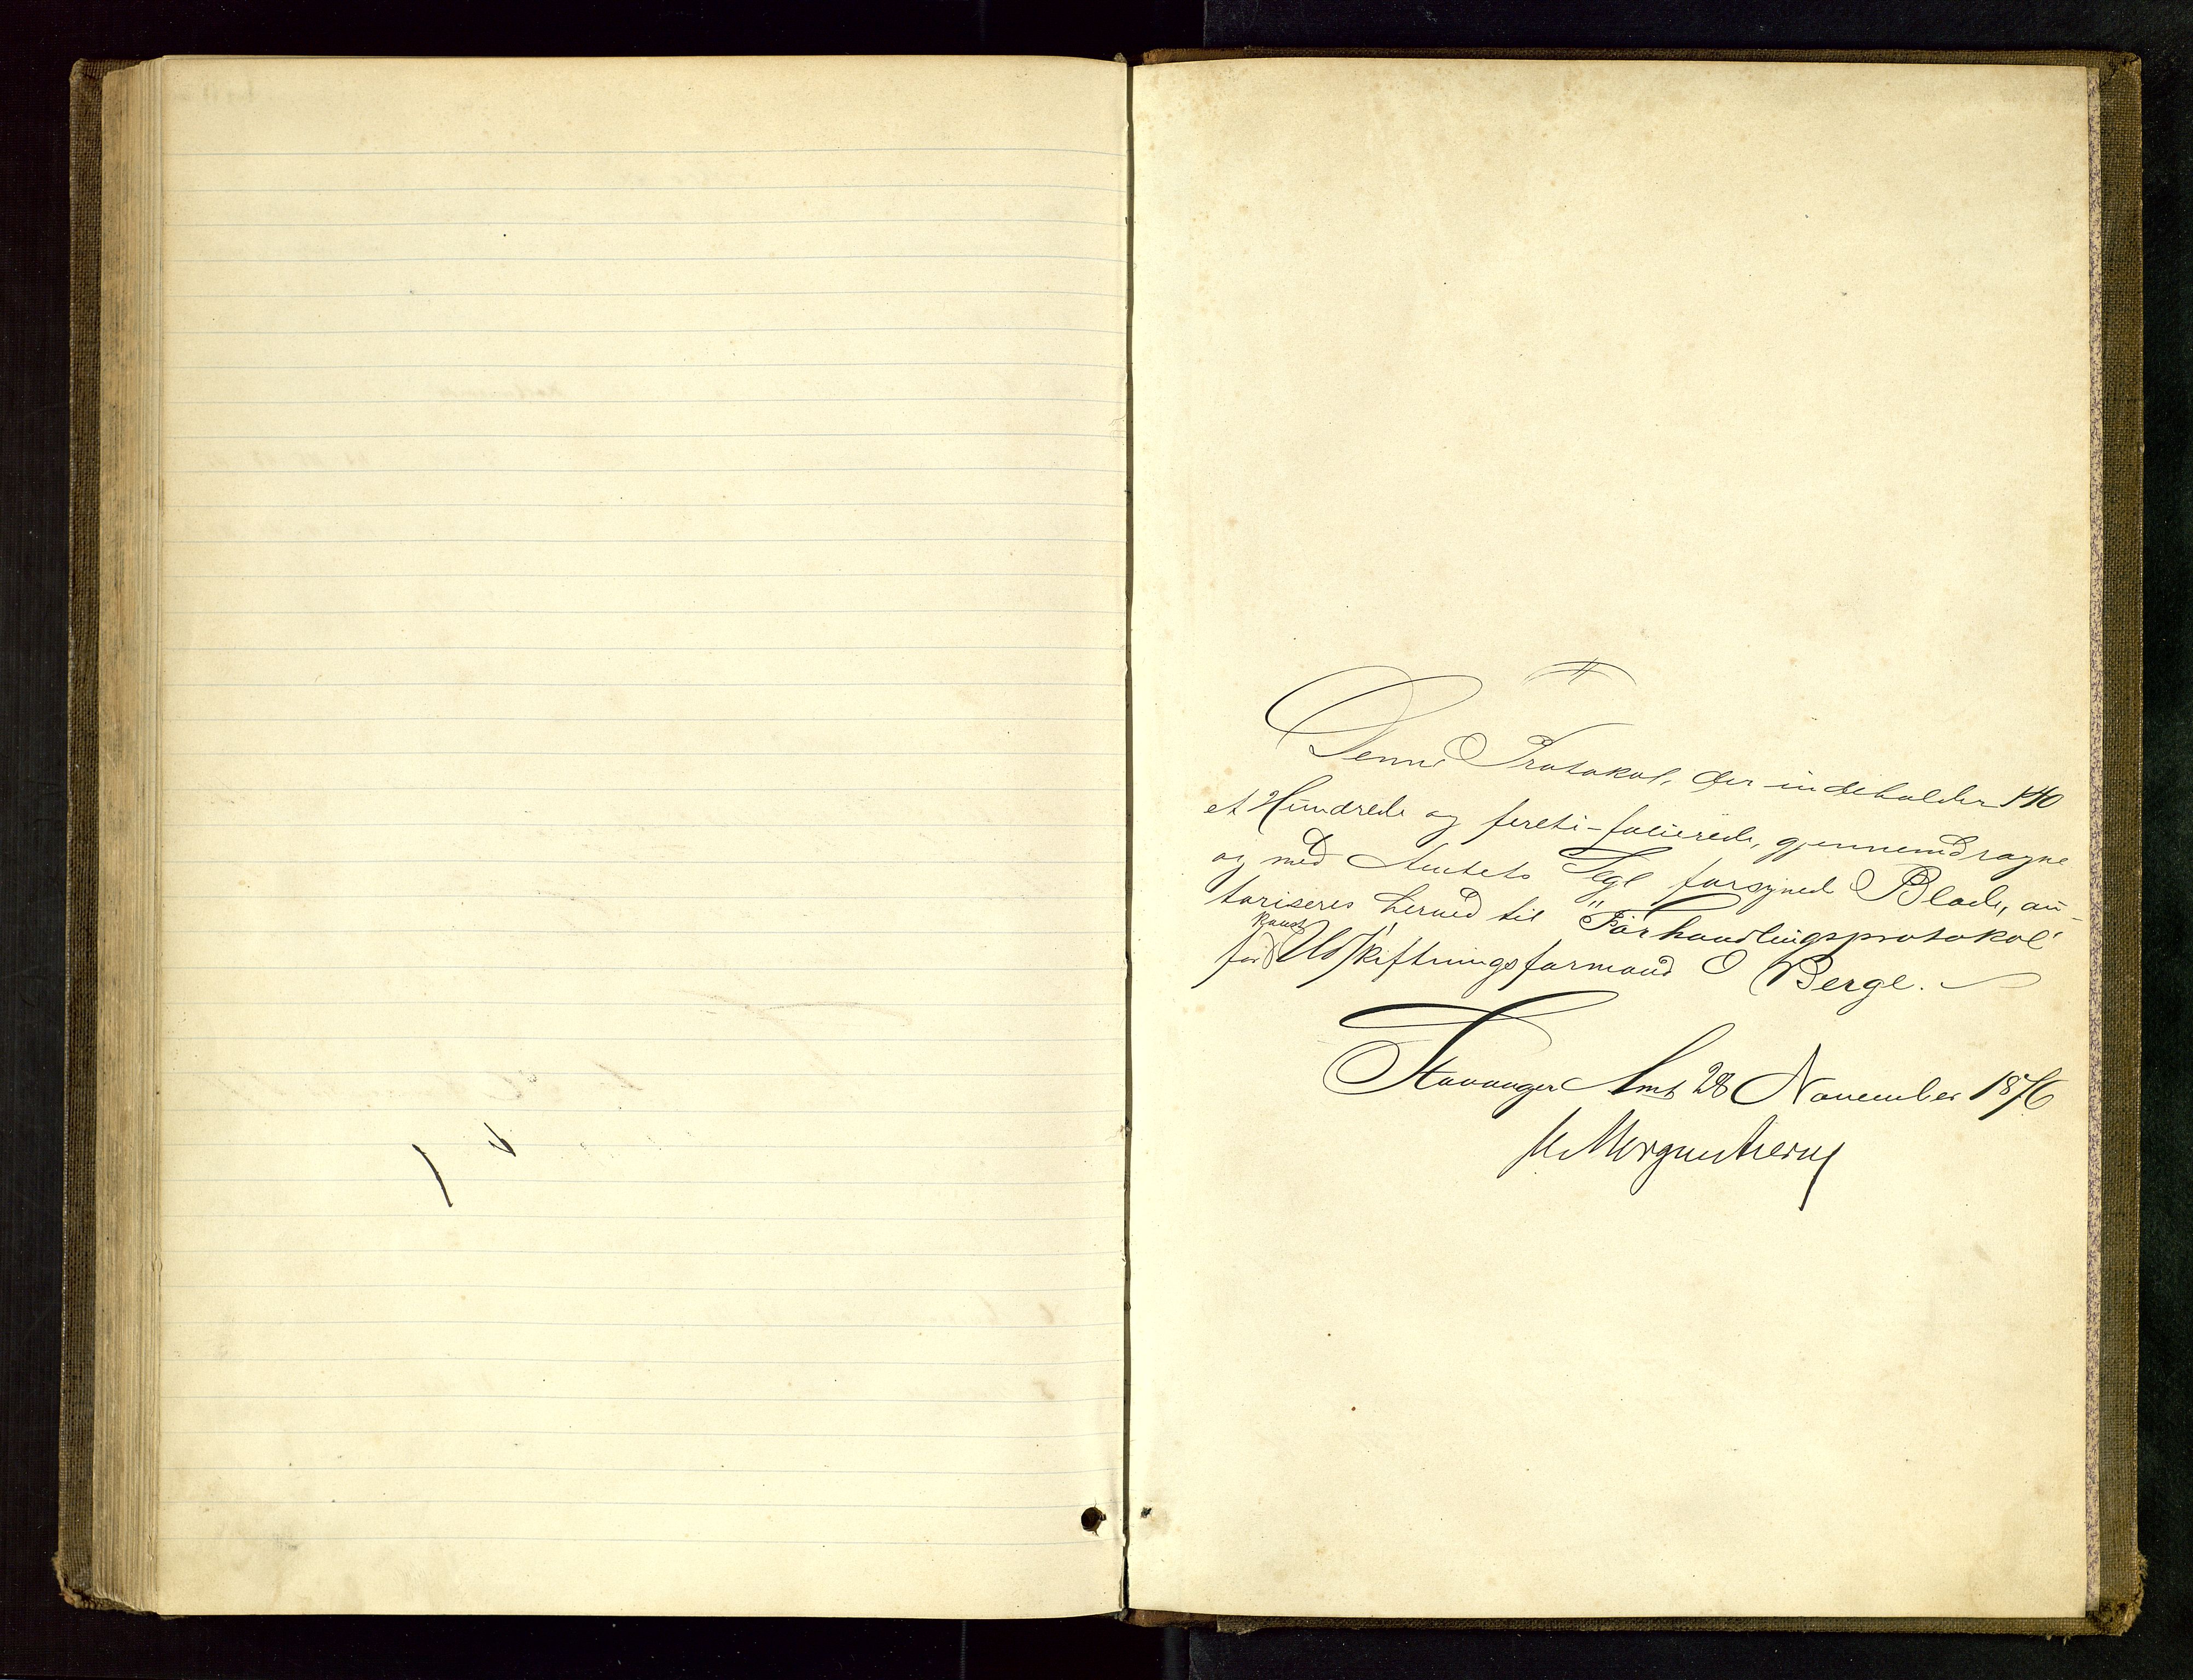 Denne Protokol, der indeholder 140
et Hundrede og fireti-folierede, gjennemdragne
og med Amtets Segl forsynede Blade, au-
toriseres herved til "Forhandlingsprotokol"
for konst Udskiftningsformand O Berge.
Stavanger Amt 28 November 1876
Morgenstierne